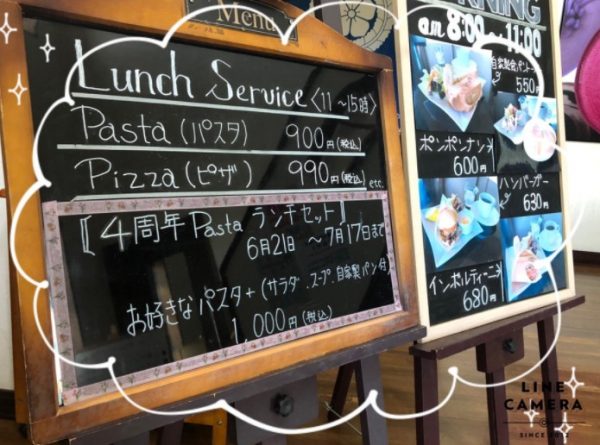 Menu
Lunch Service〈11〜15時〉
Pasta(パスタ) 900円(税込)
Pizza(ピザ) 990円(税込) etc.
〚4周年Pasta ランチセット〛
6月21日 〜7月17日まで
お好きなパスタ+(サラダ.スープ.自家製パン付
1,000円(税込)
am 8:00〜11:00
自家製食パントースト
550円
ポンポンナンド
600円
ハンバーガー
630円
インボルティーニ
680円
LINE
CAMERA
SINCE 2012